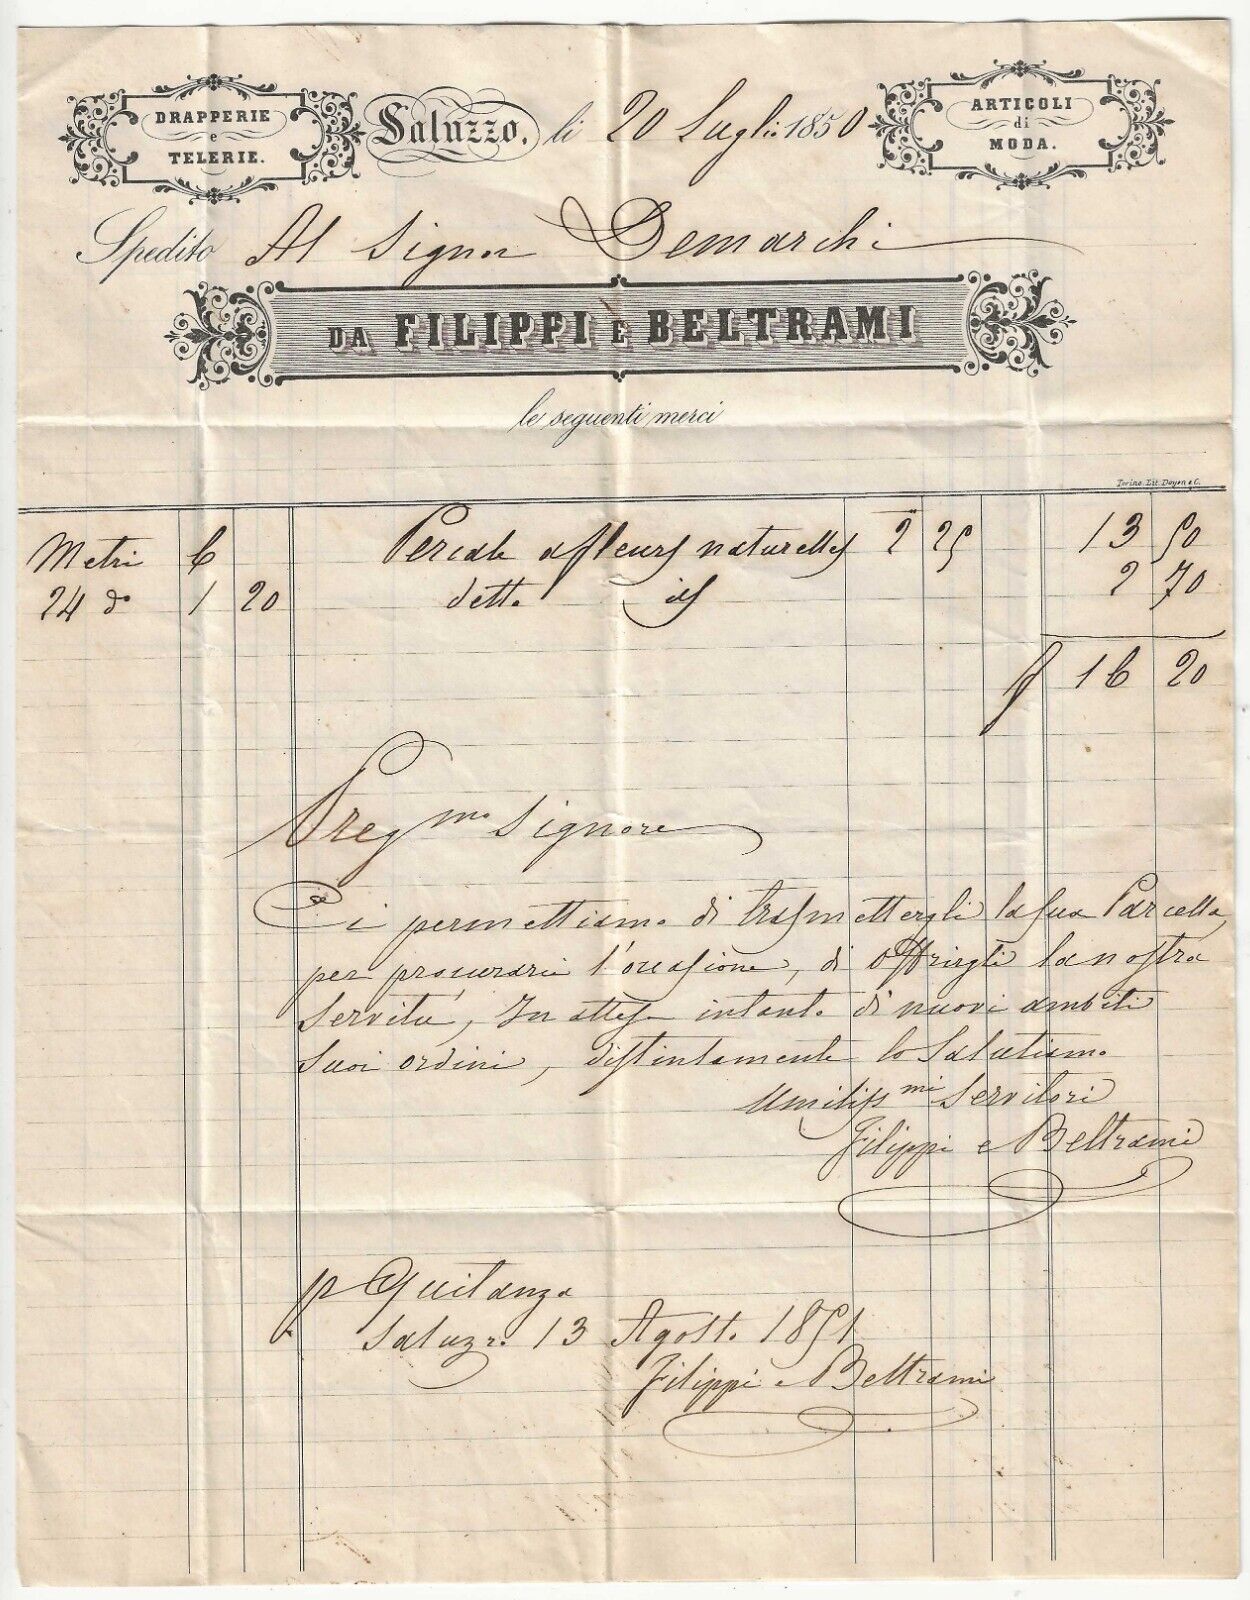 DRAPPERIE
e
TELERIE.
Saluzzo, li 20 Luglio 1850
ARTICOLI
di
MODA.
Spedito Al Signor Demarchi
DA FILIPPI E BELTRAMI
le seguenti merci
Torino Lit. Doyen e C.
Metri 6 Percale a fleurs naturelles 2 25 13 50
24 do 1 20 detto id 2 70
f 16 20
Pregmo Signore
Ci permettiamo di trasmettergli la sua Parcella,
per procurarci l'occasione, di offrirgli la nostra
Servitù, In attesa intanto di nuovi ambiti
suoi ordini, distintamente lo Salutiamo
Umilissmi Servitori
Filippi e Beltrami
p Quitanza
Saluzzo 13 Agosto 1851
Filippi e Beltrami